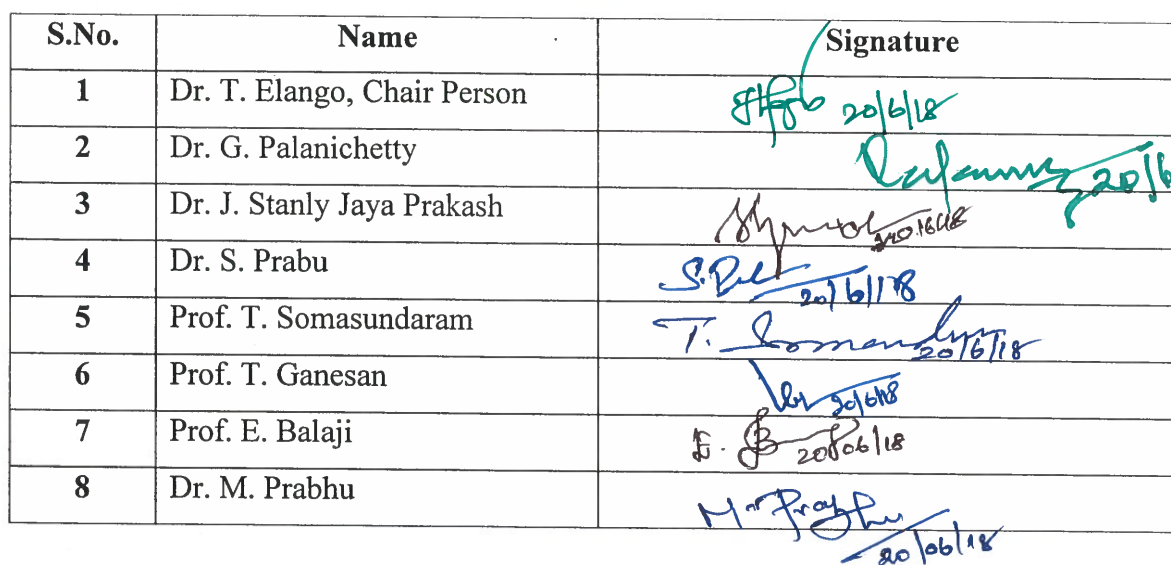 S.No. Name Signature
1 Dr. T. Elango, Chair Person 20/6/18
2 Dr. G. Palanichetty 20/6
3 Dr. J. Stanly Jaya Prakash 20/6/18
4 Dr. S. Prabu 20/6/18
5 Prof. T. Somasundaram T. 20/6/18
6 Prof. T. Ganesan 20/6/18
7 Prof. E. Balaji E. 20/06/18
8 Dr. M. Prabhu 20/06/18